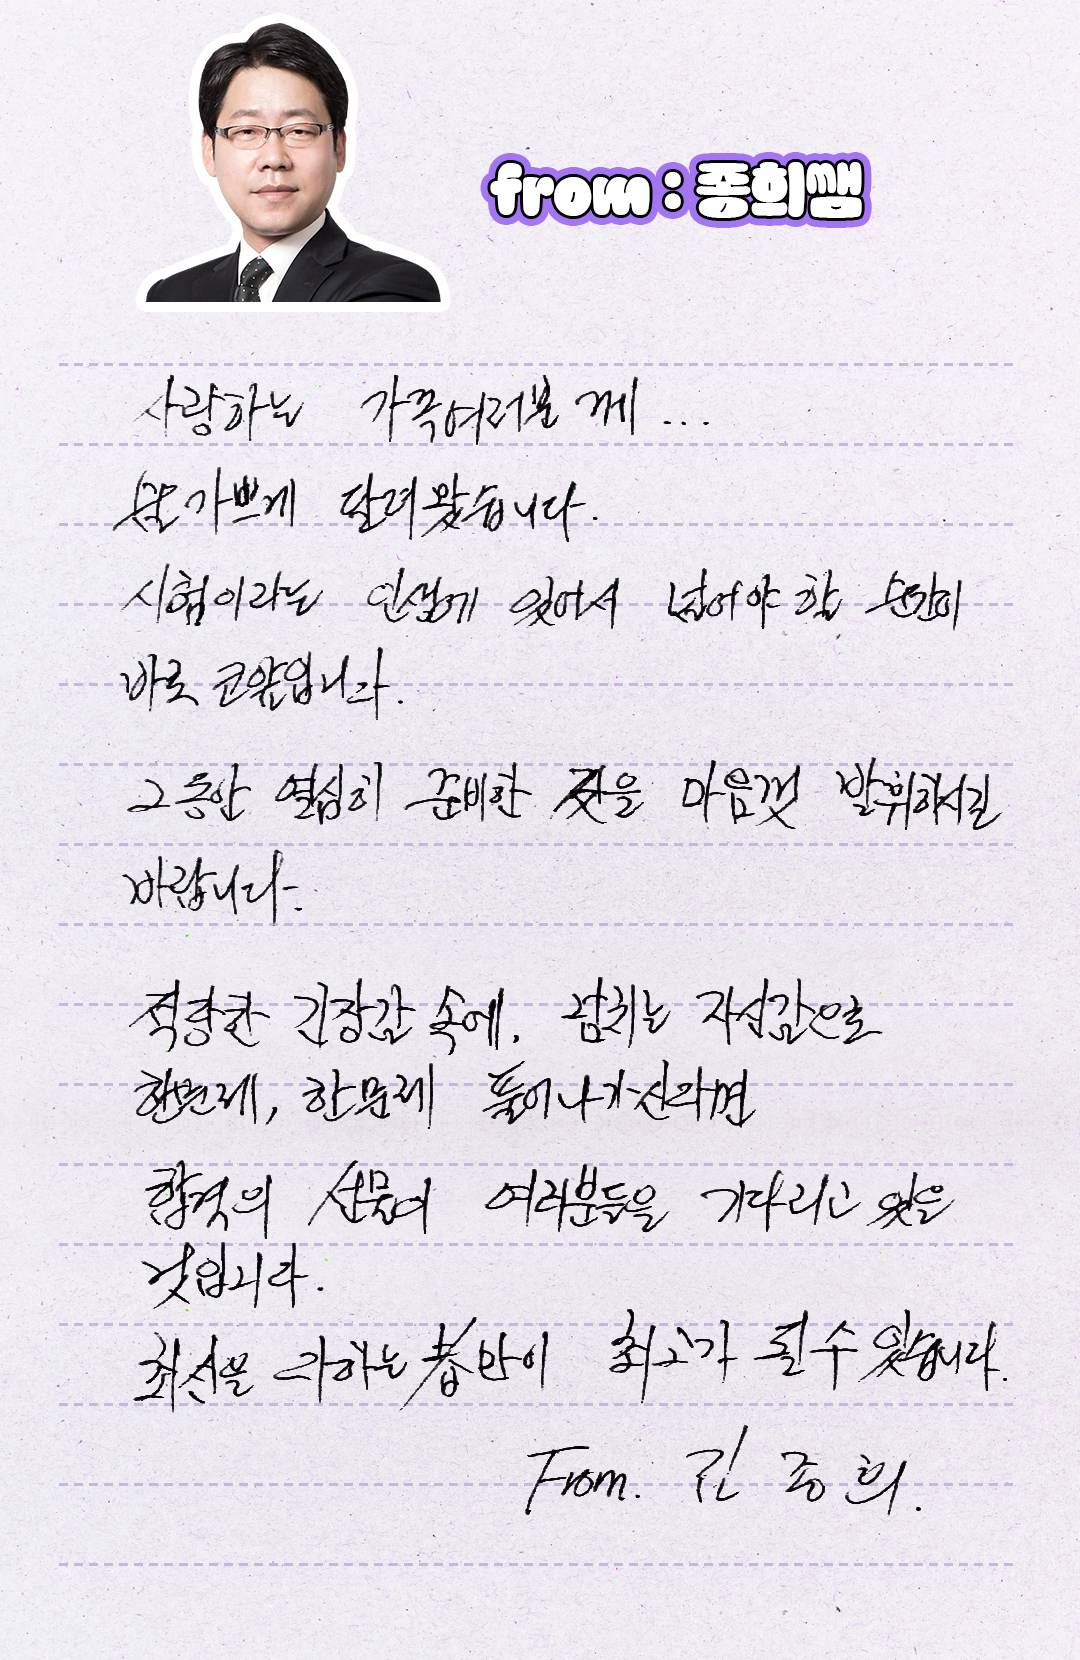 from : 종희쌤
사랑하는 가족여러분께...
숨가쁘게 달려왔습니다.
시험이라는 인생에 있어서 넘어야할 순간이
바로 코앞입니다.
그동안 열심히 준비한 것을 마음껏 발휘하시길
바랍니다.
적당한 긴장감 속에, 넘치는 자신감으로
한문제, 한문제 풀어나가신다면
합격의 선물이 여러분들을 기다리고 있을
것입니다.
최선을 다하는 者만이 최고가 될 수 있습니다.
From. 김종희.